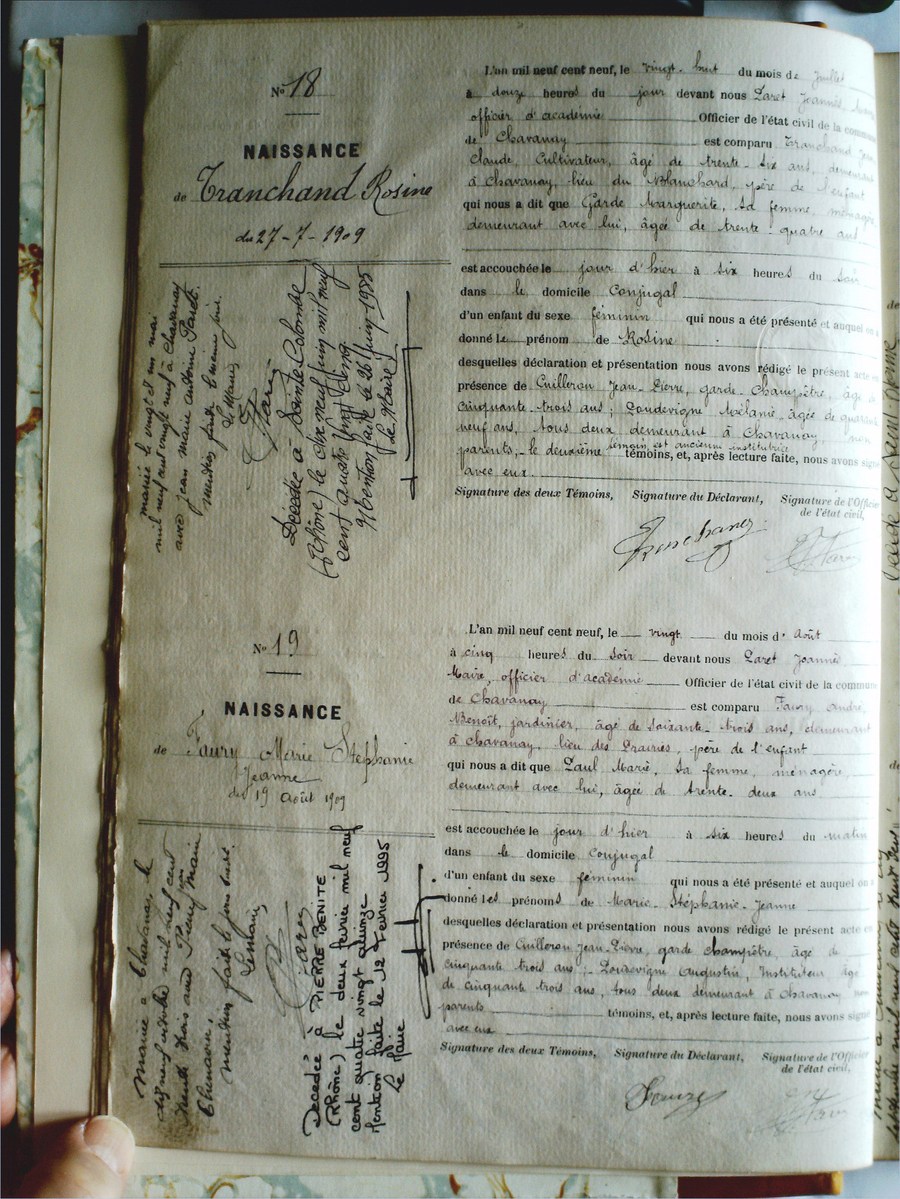 No 18
NAISSANCE
de Tranchand Rosine
du 27-7-1909
mariée le vingt et un mai
mil neuf cent vingt neuf à Chavanay
avec jean marie antoine Paret.
mention faite
Le Maire
Decedée à Sainte Colombe
(Rhône) le dix neuf juin mil neuf
cent quatre vingt cinq
Mention faite le 26 juin 1985
Le Maire
L'an mil neuf cent neuf, le vingt-huit du mois de juillet
à douze heures du jour devant nous Paret Joannès,
officier d'académie Officier de l'état civil de la commune
de Chavanay est comparu Tranchand
Claude, Cultivateur, âgé de trente-six ans, demeurant
à Chavanay, lieu du Blanchard, père de l'enfant
qui nous a dit que Garde Marguerite, sa femme, ménagère
demeurant avec lui, âgée de trente-quatre ans
est accouchée le jour d'hier à six heures du soir
dans le domicile Conjugal
d'un enfant du sexe féminin qui nous a été présenté et auquel
donné le prénom de Rosine
desquelles déclaration et présentation nous avons rédigé le présent acte en
présence de Cuilleron Jean-Pierre, garde-Champêtre, âgé de
cinquante-trois ans; Mélanie, âgée de quarante
neuf ans, tous deux demeurant à Chavanay, non
parents, le deuxième témoin est ancienne institutrice témoins, et, après lecture faite, nous avons signé
avec eux
Signature des deux Témoins, Signature du Déclarant, Signature de l'Officier
de l'état civil,
No 19
NAISSANCE
de Faury Marie Stéphanie
Jeanne
du 19 Août 1909
Mariée à Chavanay, le
mil neuf cent
trente trois avec Pierre Marie
Decedée à PIERRE BENITE
(Rhône) le deux fevrier mil neuf
cent quatre vingt quinze
Mention faite le 12 Fevrier 1995
le Maire
L'an mil neuf cent neuf, le vingt du mois d' Août
à cinq heures du soir devant nous Paret Joannès
Maire, officier d'académie Officier de l'état civil de la commune
de Chavanay est comparu Faury André,
Benoît, jardinier, âgé de soixante-trois ans, demeurant
à Chavanay, lieu des Prairies, père de l'enfant
qui nous a dit que Paul Marie, sa femme, ménagère,
demeurant avec lui, âgée de trente-deux ans
est accouchée le jour d'hier à six heures du matin
dans le domicile Conjugal
d'un enfant du sexe féminin qui nous a été présenté et auquel
donné les prénoms de Marie-Stéphanie-Jeanne
desquelles déclaration et présentation nous avons rédigé le présent acte en
présence de Cuilleron Jean-Pierre, garde champêtre, âgé de
cinquante trois ans; Augustin, Instituteur âgé
de cinquante trois ans, tous deux demeurant à Chavanay non
parents témoins, et, après lecture faite, nous avons signé
avec eux
Signature des deux Témoins, Signature du Déclarant, Signature de l'Officier
de l'état civil,